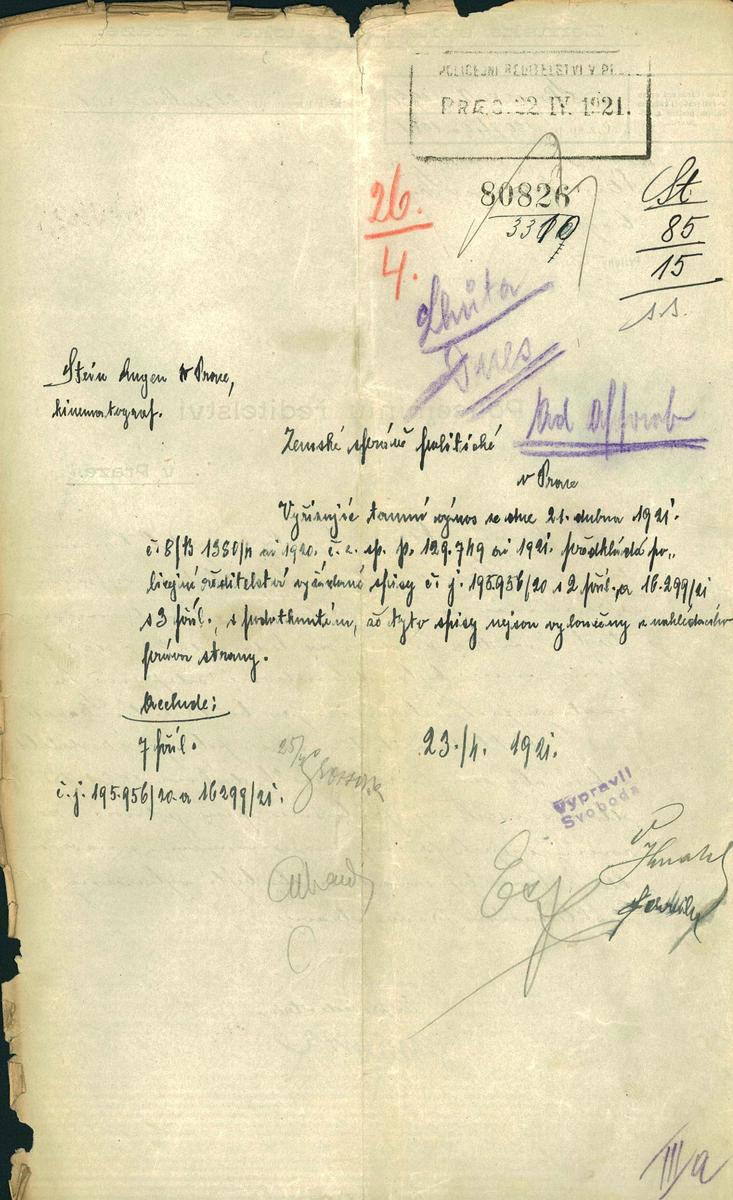 POLICEJNÍ ŘEDITELSTVÍ V PR
PRÆS. 22 IV. 1921.
80826
3310
26.
4.
St
85
15
s.s.
Lhůta
Dnes
Stein Eugen v Praze,
kinematograf.
Zemské správě politické
v Praze
Vyřizujíc tamní výnos ze dne 21. dubna 1921.
č. 8/B 1380/4 ai 1920. č. z. sp. p. 129.749 ai 1921. předkládá po-
licejní ředitelství vyžádané spisy č. j. 195.956/20 s 2 příl., a 16.299/21
s 3 příl., s podotknutím, že tyto spisy nejsou vyloučeny z nahlédacího
práva strany.
Acclude:
7 příl.
č. j. 195.956/20 a 16299/21.
23./4. 1921.
25/4
Vypravil
Svoboda
Exp.
III a